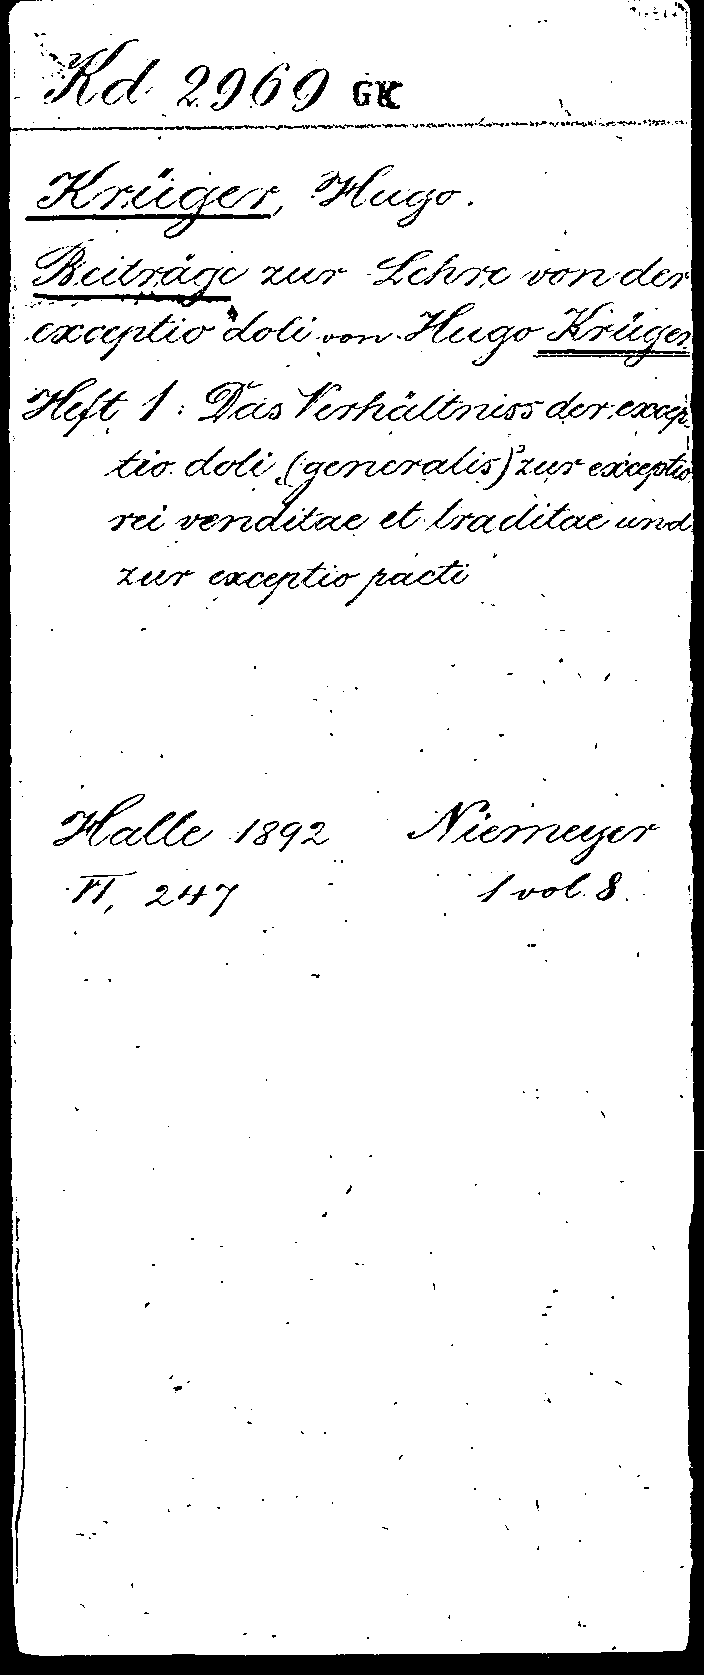 Kd 2969 GK
Krüger, Hugo.
Beiträge zur Lehre von der
exceptio doli von Hugo Krüger
Heft 1: Das Verhältniss der excep-
tio doli (generalis) zur exceptio
rei venditae et traditae und
zur exceptio pacti
Halle 1892 Niemeyer
VI, 247 1 vol. 8.